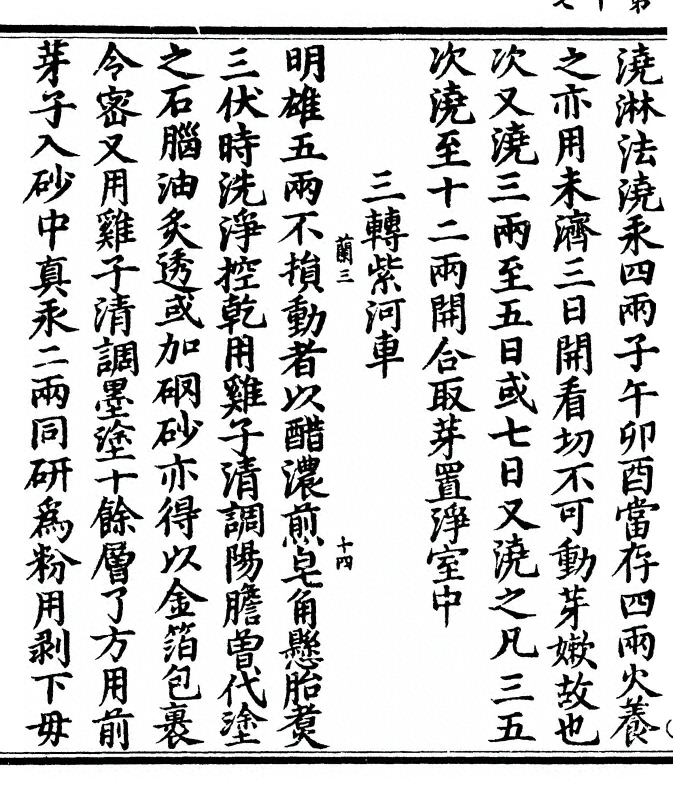 澆淋法澆汞四兩子午卯酉當存四兩火養
之亦用未濟三日開看切不可動芽嫩故也
次又澆三兩至五日或七日又澆之凡三五
次澆至十二兩開合取芽置淨室中
三轉紫河車
蘭三
十四
明雄五兩不損動者以醋濃煎皂角懸胎煑
三伏時洗淨控乾用雞子清調陽膽曾代塗
之石腦油炙透或加硇砂亦得以金箔包裹
令密又用雞子清調墨塗十餘層了方用前
芽子入砂中真汞二兩同研爲粉用剥下毋